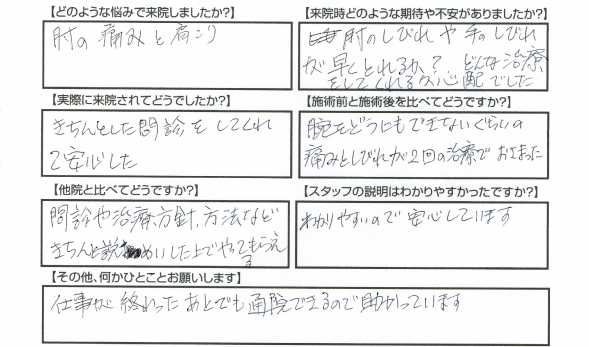 【どのような悩みで来院しましたか?】
肘の痛みと肩こり
【来院時どのような期待や不安がありましたか?】
肘のしびれや手のしびれ
が早くとれるか? どんな治療
をしてくれるか心配でした
【実際に来院されてどうでしたか?】
きちんとした問診をしてくれ
て安心した
【施術前と施術後を比べてどうですか?】
腕をどうにもできないぐらいの
痛みとしびれが2回の治療でおさまった
【他院と比べてどうですか?】
問診や治療方針、方法など
きちんと説めいした上でやってもらえ
る
【スタッフの説明はわかりやすかったですか?】
わかりやすいので安心しています
【その他、何かひとことお願いします】
仕事が終わったあとでも通院できるので助かっています